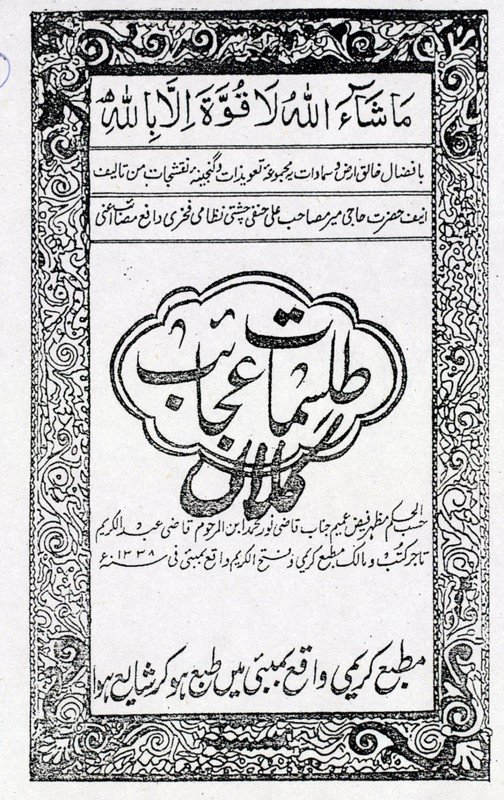 ما شاء الله لا قوة الا بالله
بافضال خالق ارض و سماوات یہ مجموعۂ تعویذات و گنجینۂ نقشجات من تالیف
انیف حضرت حاجی میر مصاحب علی حنفی چشتی نظامی فخری دافع مضار اعنی
طلسمات عجائب
کلاں
حسب الحکم مظہر فیض عمیم جناب قاضی نور محمد ابن المرحوم قاضی عبد الکریم
تاجر کتب و مالک مطبع کریمی و فتح الکریم واقع بمبئی فی سنہ ۱۳۳۸
مطبع کریمی واقع بمبئی میں طبع ہو کر شایع ہوا